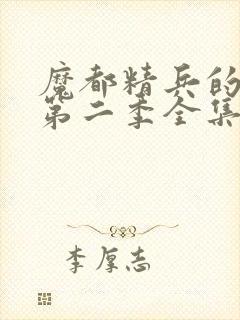 魔都精兵的
第二季全集
李厚志